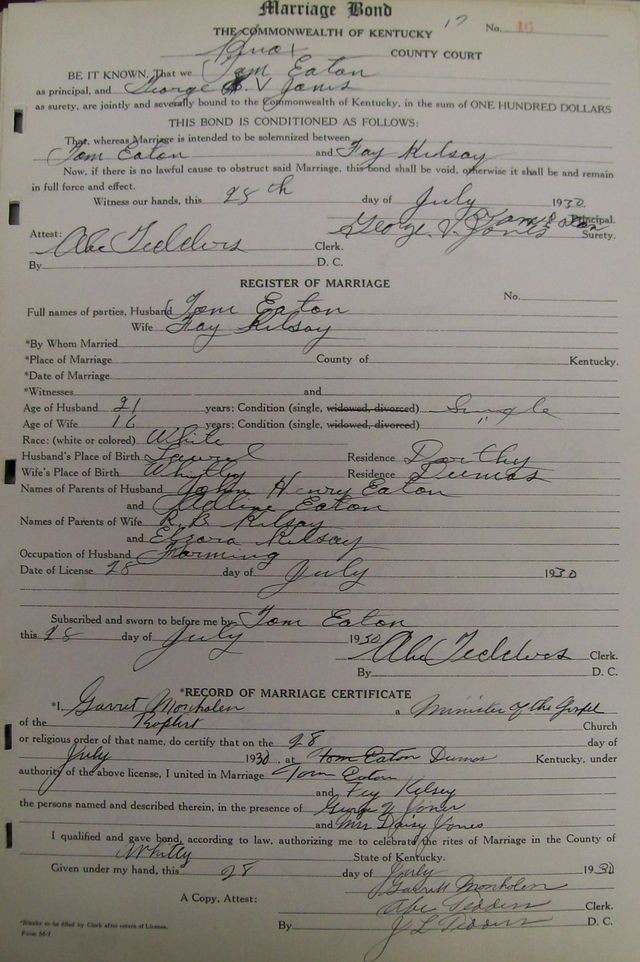 Marriage Bond
17
THE COMMONWEALTH OF KENTUCKY No. 16
Knox COUNTY COURT
BE IT KNOWN, That we Tom Eaton
as principal, and George V Jones
as surety, are jointly and severally bound to the Commonwealth of Kentucky, in the sum of ONE HUNDRED DOLLARS
THIS BOND IS CONDITIONED AS FOLLOWS:
That, whereas Marriage is intended to be solemnized between
Tom Eaton and Fay Kilsay
Now, if there is no lawful cause to obstruct said Marriage, this bond shall be void, otherwise it shall be and remain
in full force and effect.
Witness our hands, this 28th day of July 1930
Tom Eaton Principal.
George V. Jones Surety.
Attest: Abe Tedders Clerk.
By D. C.
REGISTER OF MARRIAGE
No.
Full names of parties, Husband Tom Eaton
Wife Fay Kilsay
*By Whom Married
*Place of Marriage County of Kentucky.
*Date of Marriage
*Witnesses and
Age of Husband 21 years; Condition (single, widowed, divorced) Single
Age of Wife 16 years; Condition (single, widowed, divorced) "
Race: (white or colored) White
Husband's Place of Birth Laurel Residence Dorthy
Wife's Place of Birth Whitley Residence Dumas
Names of Parents of Husband John Henry Eaton
and Adline Eaton
Names of Parents of Wife R. B. Kilsay
and Elzora Kilsay
Occupation of Husband Farming
Date of License 28 day of July 1930
Subscribed and sworn to before me by Tom Eaton
this 28 day of July 1930 Abe Tedders Clerk.
By D. C.
*RECORD OF MARRIAGE CERTIFICATE
*I, Garret Monholen a Minister of the Gospel
of the Church
or religious order of that name, do certify that on the 28 day of
July 1930, at Tom Eaton Dumas Kentucky, under
authority of the above license, I united in Marriage Tom Eaton
and Fey Kelsey
the persons named and described therein, in the presence of George V Joner
and Mrs Daisy Jones
I qualified and gave bond, according to law, authorizing me to celebrate the rites of Marriage in the County of
Whitly State of Kentucky.
Given under my hand, this 28 day of July 1930
Garrett Monholen
A Copy, Attest: Abe Tedders Clerk
By J L Tedders D. C.
*Blanks to be filled by Clerk after return of License.